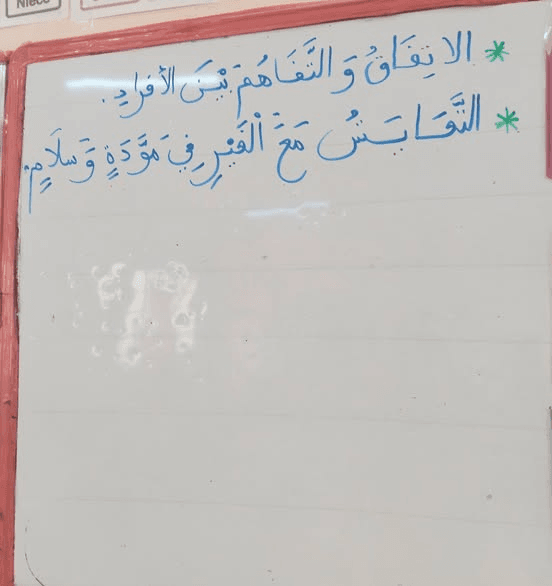 Niece
* الاتِفَاقُ وَ التَّفَاهُمَ بَيْنَ الأفرادِ.
* التَّعَايَشُ مَعَ الْغَيْرِ فِي مَوَّدَةٍ وَ سلَامٍ.